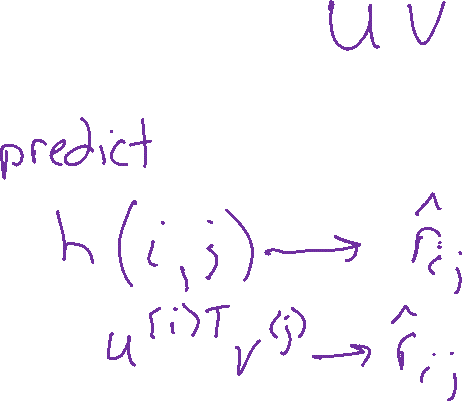 U V
predict
h(i,j) → r̂ij
u^(i)T v^(j) → r̂ij